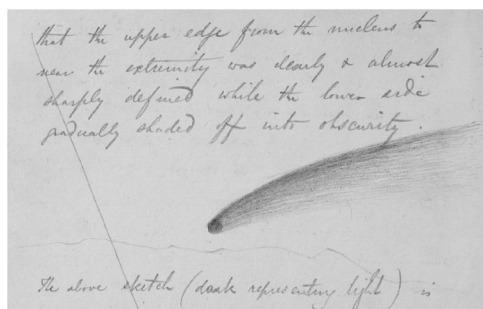 that the upper edge from the nucleus to
near the extremity was clearly & almost
sharply defined while the lower side
gradually shaded off into obscurity.
The above sketch (dark representing light) is